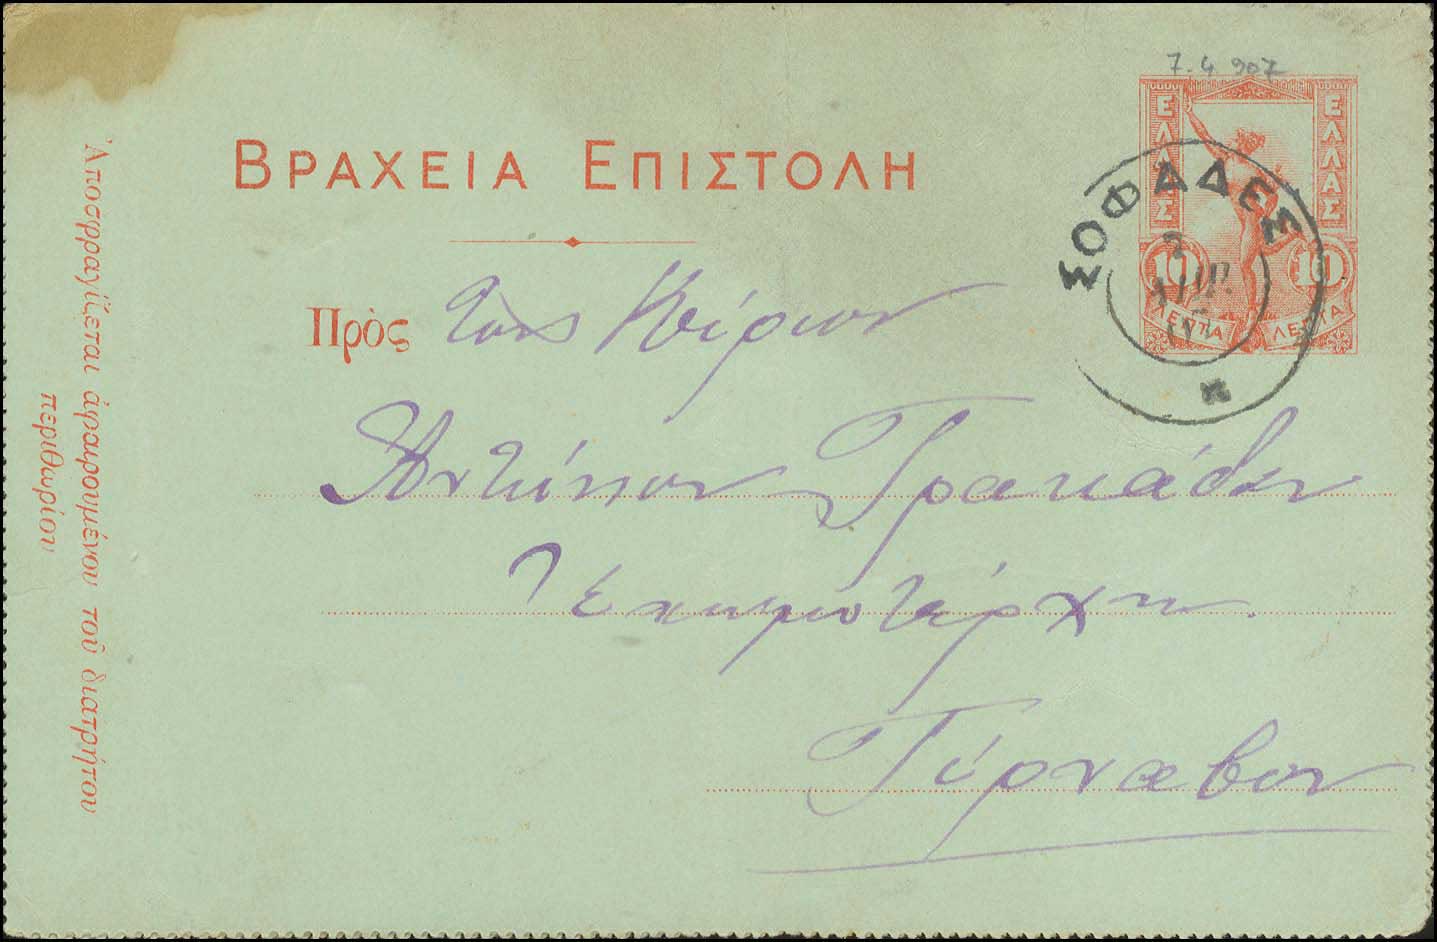 7.4 907
ΕΛΛΑΣ ΕΛΛΑΣ
10 10
ΛΕΠΤΑ ΛΕΠΤΑ
ΣΟΦΑΔΕΣ
ΒΡΑΧΕΙΑ ΕΠΙΣΤΟΛΗ
Πρὸς τὸν Κύριον
Ἀντώνιον Γρακάδην
Τύρναβον
Ἀποσφραγίζεται ἀφαιρουμένου τοῦ διατρήτου
περιθωρίου